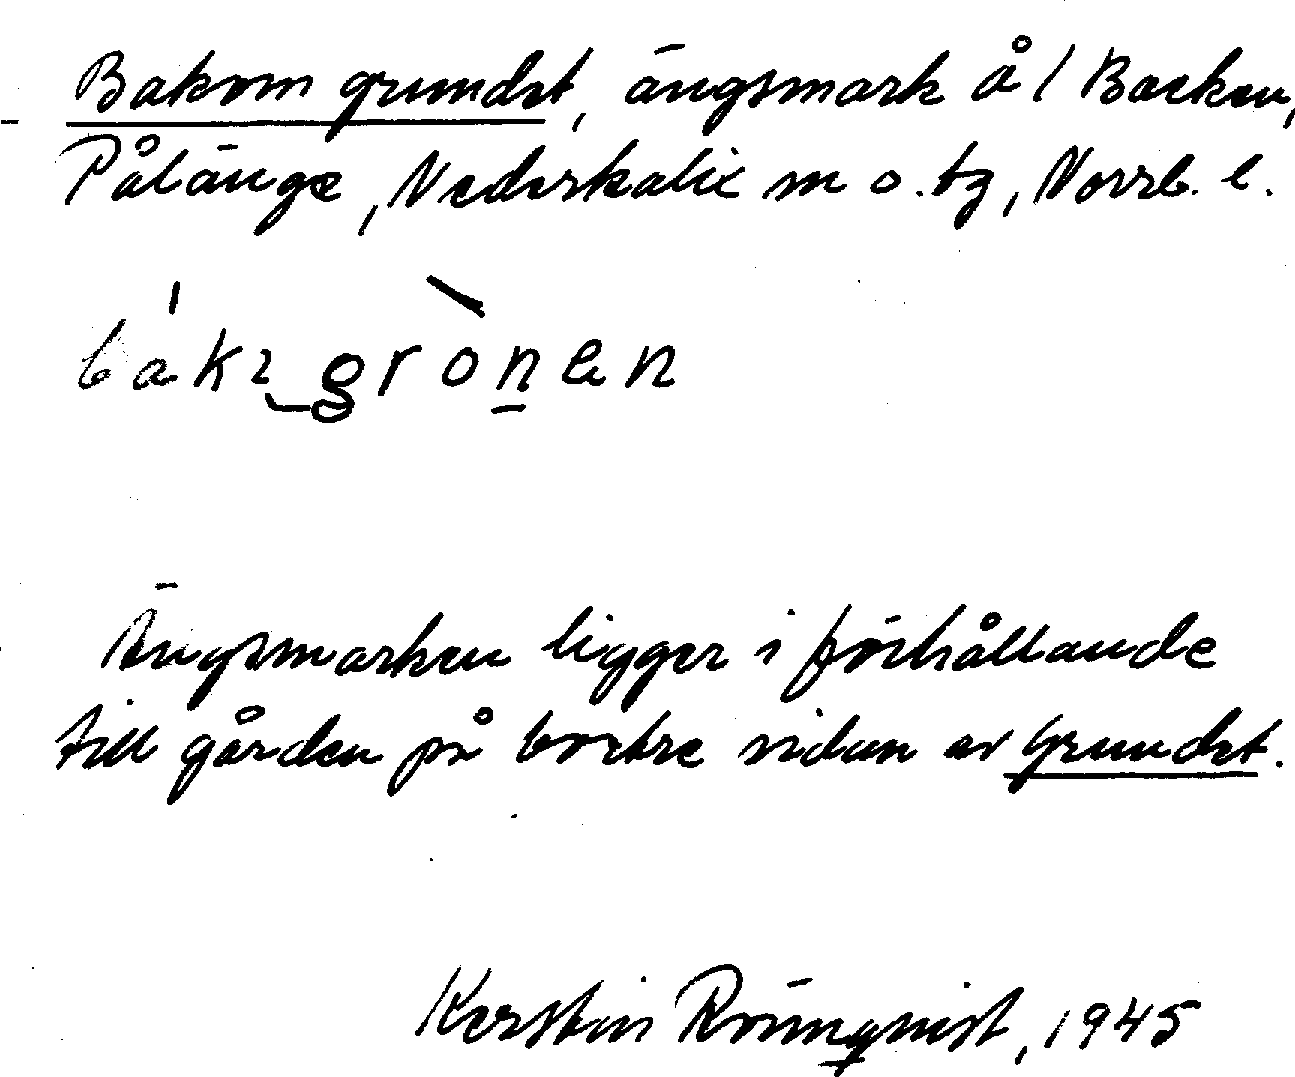 Bakom grundet, ängsmark å 1 Backen,
Pålänge, Nederkalix sn o. tg, Norrb. l.
Ängsmarken ligger i förhållande
till gården på bortre sidan av Grundet.
Kerstin Rönnqvist, 1945